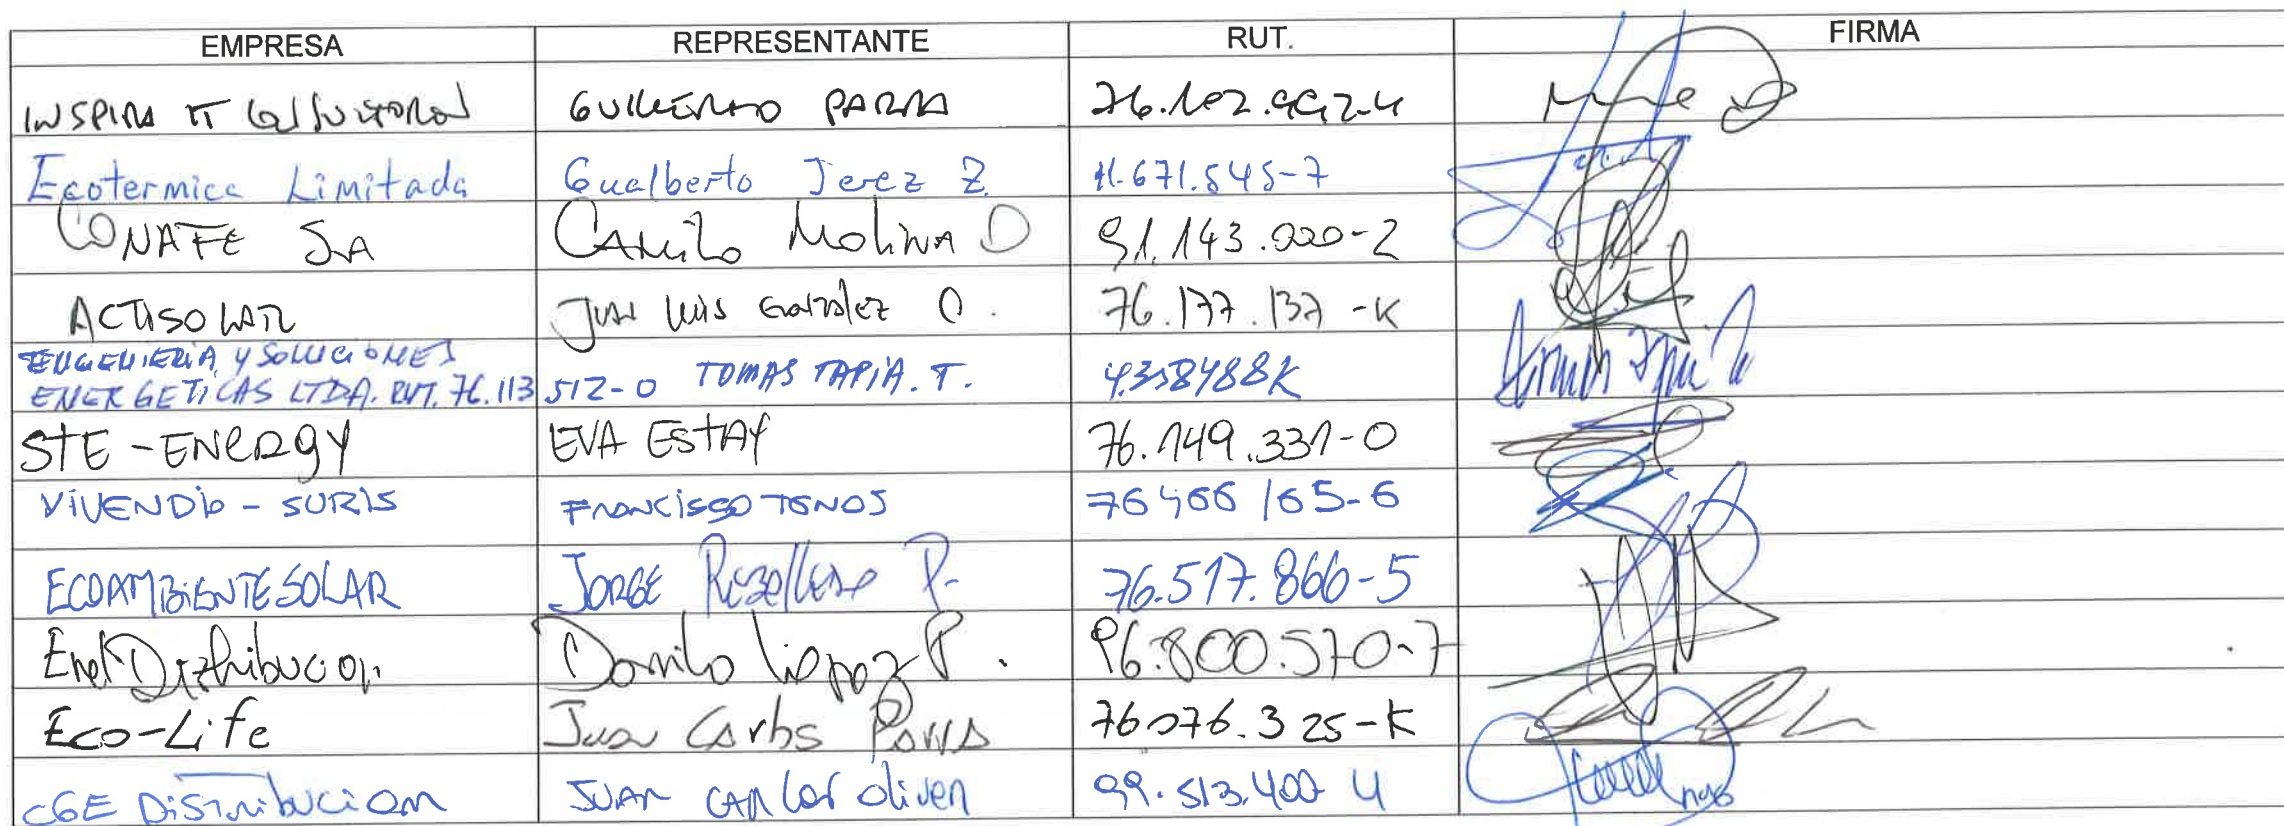 EMPRESA REPRESENTANTE RUT. FIRMA
INSPIRA IT GUILLERMO PARRA 76.102.992-4
Ecotermica Limitada Gualberto Jerez Z. 11.671.545-7
CONAFE SA CAMilo MoliNA D 91.143.000-2
ACTISOLAR JUAN LUIS González O. 76.177.137-K
INGENIERIA Y SOLUCIONES
ENERGETICAS LTDA. RUT. 76.113 512-0 TOMAS TAPIA. T. 4.358488K
STE-ENERGY EVA ESTAY 76.149.331-0
VIVENDIO - SURIS FRANCISCO 76466165-6
ECOAMBIENTE SOLAR JORGE P. 76.517.866-5
Enel Distribucion Danilo López P. 96.800.570-7
Eco-Life Juan Carlos Parra 76076.325-K
CGE DISTRIBUCION JUAN CARLOS Oliver 99.513.400 4